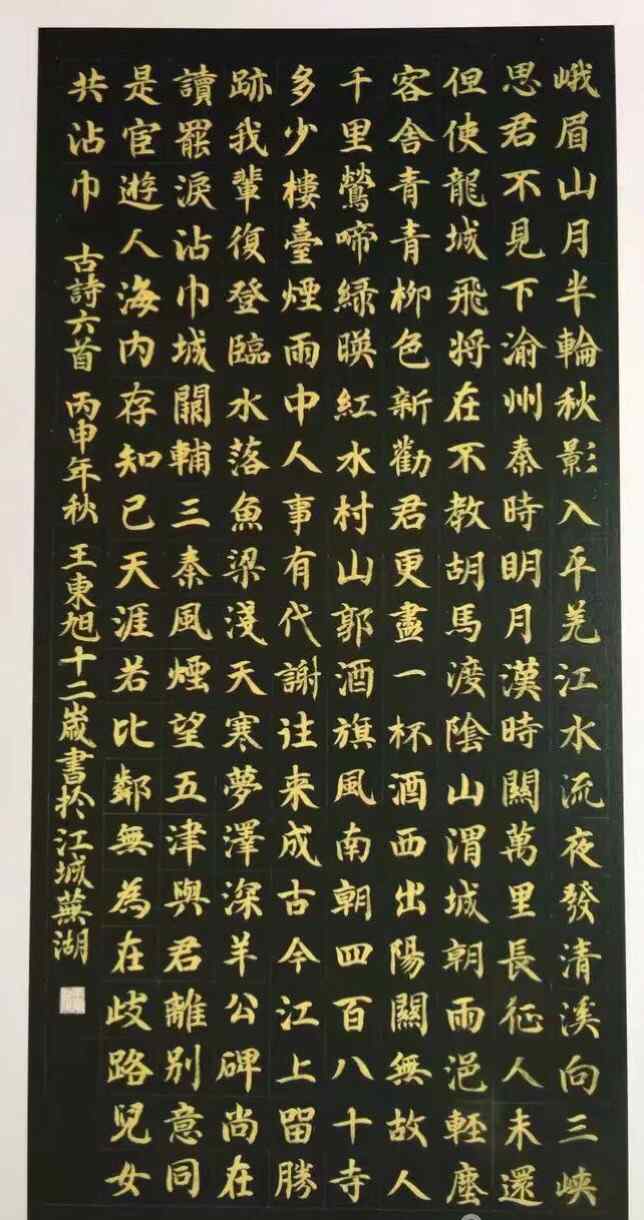 峨眉山月半輪秋影入平羌江水流夜發清溪向三峽
思君不見下渝州秦時明月漢時關萬里長征人未還
但使龍城飛將在不教胡馬渡陰山渭城朝雨浥輕塵
客舍青青柳色新勸君更盡一杯酒西出陽關無故人
千里鶯啼綠暎紅水村山郭酒旗風南朝四百八十寺
多少樓臺煙雨中人事有代謝往来成古今江上留勝
跡我輩復登臨水落魚梁淺天寒夢澤深羊公碑尚在
讀罷淚沾巾城闕輔三秦風煙望五津與君離別意同
是宦遊人海内存知己天涯若比鄰無為在歧路兒女
共沾巾 古詩六首 丙申年秋 王東旭十二歲書於江城蕪湖